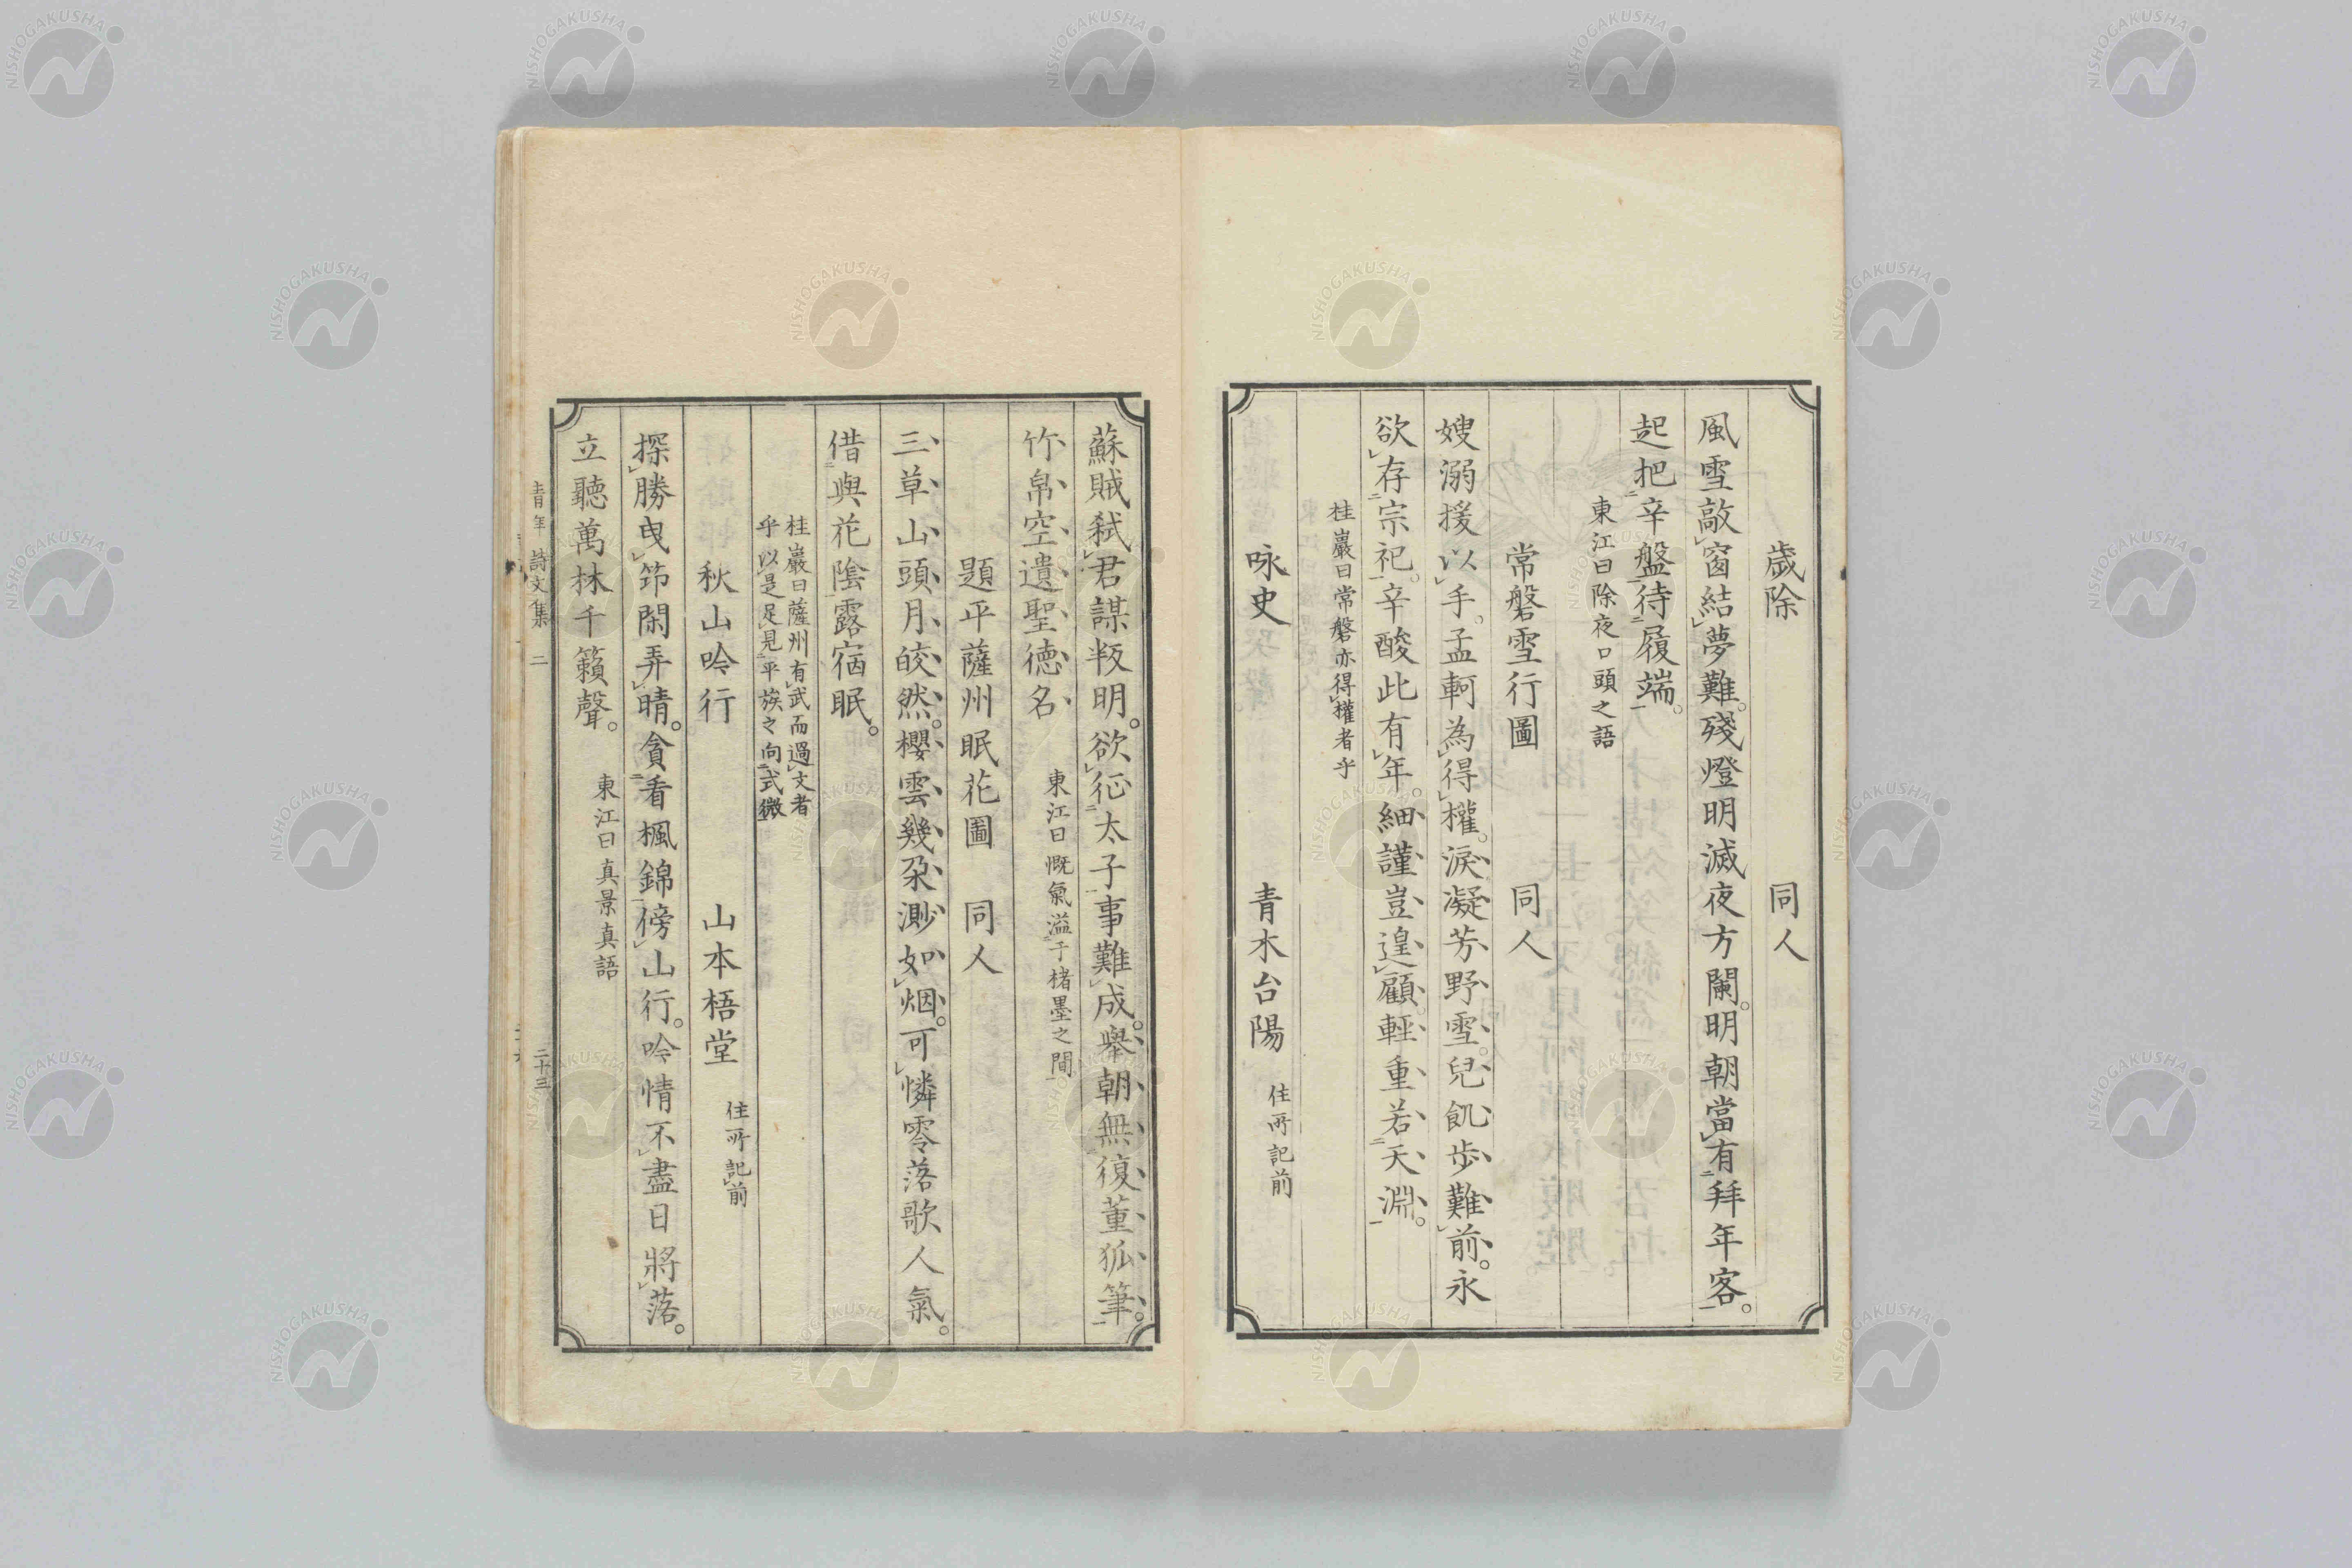 歲除　同人
風雪敲窗結夢難。殘燈明滅夜方闌。明朝當有拜年客。
起把辛盤待履端。
東江曰除夜口頭之語
常磐雪行圖　同人
嫂溺援以手。孟軻為得權。淚凝芳野雪。兒飢步難前。永
欲存宗祀。辛酸此有年。細謹豈遑顧。輕重若天淵。
桂巖曰常磐亦得權者乎
咏史　青木台陽　住所記前
蘇賊弒君謀叛明。欲征太子事難成。舉朝無復董狐筆。
竹帛空遺聖德名　東江曰慨氣溢于楮墨之間
題平薩州眠花圖　同人
三草山頭月皎然。櫻雲幾朶渺如烟。可憐零落歌人氣。
借與花陰露宿眠。
桂巖曰薩州有武而過文者
乎以是足見平族之向式微
秋山吟行　山本梧堂　住所記前
探勝曳笻閑弄晴。貪看楓錦傍山行。吟情不盡日將落。
立聽萬林千籟聲。　東江曰真景真語
青年詩文集　二　二十三
NISHOGAKUSHA